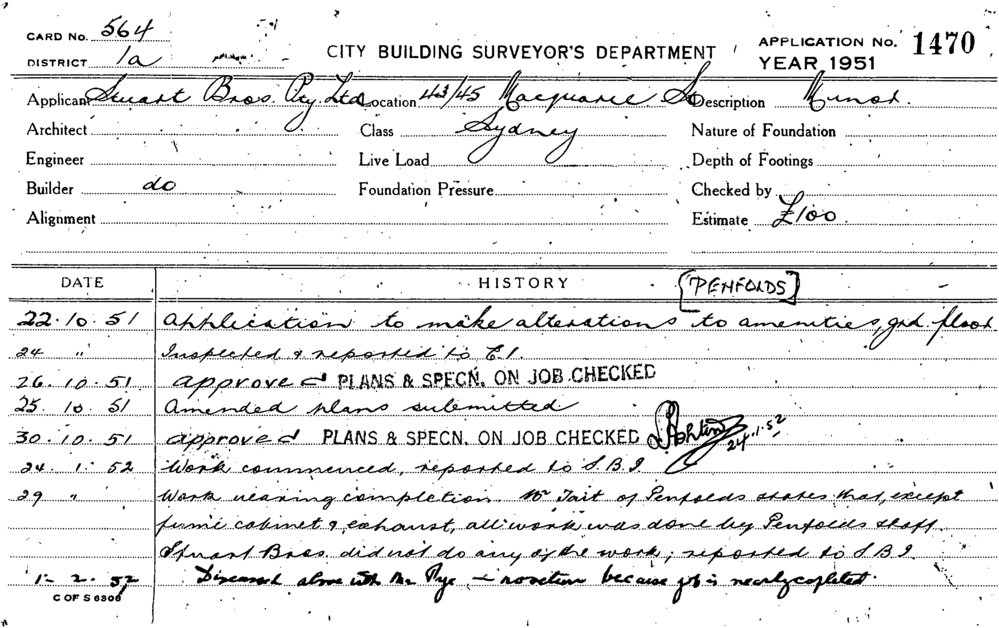 CARD No. 564
DISTRICT 1a
CITY BUILDING SURVEYOR'S DEPARTMENT
APPLICATION No. 1470
YEAR 1951
Applicant Stuart Bros. Pty. Ltd. Location 43/45 Macquarie St Description Minor.
Architect Class Sydney Nature of Foundation
Engineer Live Load Depth of Footings
Builder do Foundation Pressure Checked by
Alignment Estimate £100.
DATE HISTORY [PENFOLDS]
22.10.51 Application to make alterations to amenities, grd. floor
24 " Inspected & reported to E.I.
26.10.51 approved PLANS & SPECN. ON JOB CHECKED
25.10.51 Amended plans submitted
30.10.51 approved PLANS & SPECN. ON JOB CHECKED 24.1.52
24.1.52 Work commenced, reported to S.B.I.
29 " Work nearing completion. Mr Tait of Penfolds states that, except
fume cabinet & exhaust, all work was done by Penfolds staff.
Stuart Bros. did not do any of the work; reported to S.B.I.
1-2.52 Discussed above with Mr Pye - no action because job is nearly completed.
C OF S 6306